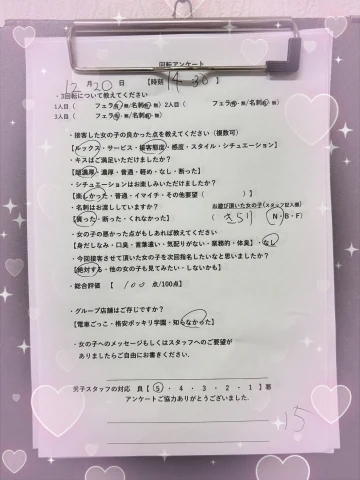 回転アンケート
12月20日 【時刻 14:30 】
・3回転について教えてください
1人目( フェラ有・無/名刺有・無) 2人目( フェラ有・無/名刺有・無)
3人目( フェラ有・無/名刺有・無)
・接客した女の子の良かった点を教えてください(複数可)
【ルックス・サービス・接客態度・感度・スタイル・シチュエーション】
・キスはご満足いただけましたか?
【超濃厚・濃厚・普通・軽め・なし・断った】
・シチュエーションはお楽しみいただけましたか?
【楽しかった・普通・イマイチ・その他要望( )】
・名刺はお渡ししていますか? お遊び頂いた女の子(スタッフ記入欄)
【貰った・断った・くれなかった】 ( きらり )(N・B・F)
・女の子の悪かった点がもしあれば教えてください
【身だしなみ・口臭・言葉遣い・気配りがない・業務的・体臭・なし】
・今回接客させて頂いた女の子を次回指名したいなと思いましたか?
【絶対する・他の女の子も見てみたい・しないかも】
・総合評価 【 100 点/100点】
・グループ店舗はご存じですか?
【電車ごっこ・格安ポッキリ学園・知らなかった】
・女の子へのメッセージもしくはスタッフへのご要望が
ありましたらご自由にお書きください.
男子スタッフの対応 良【 5・4・3・2・1 】悪
アンケートご協力ありがとうございました.
15